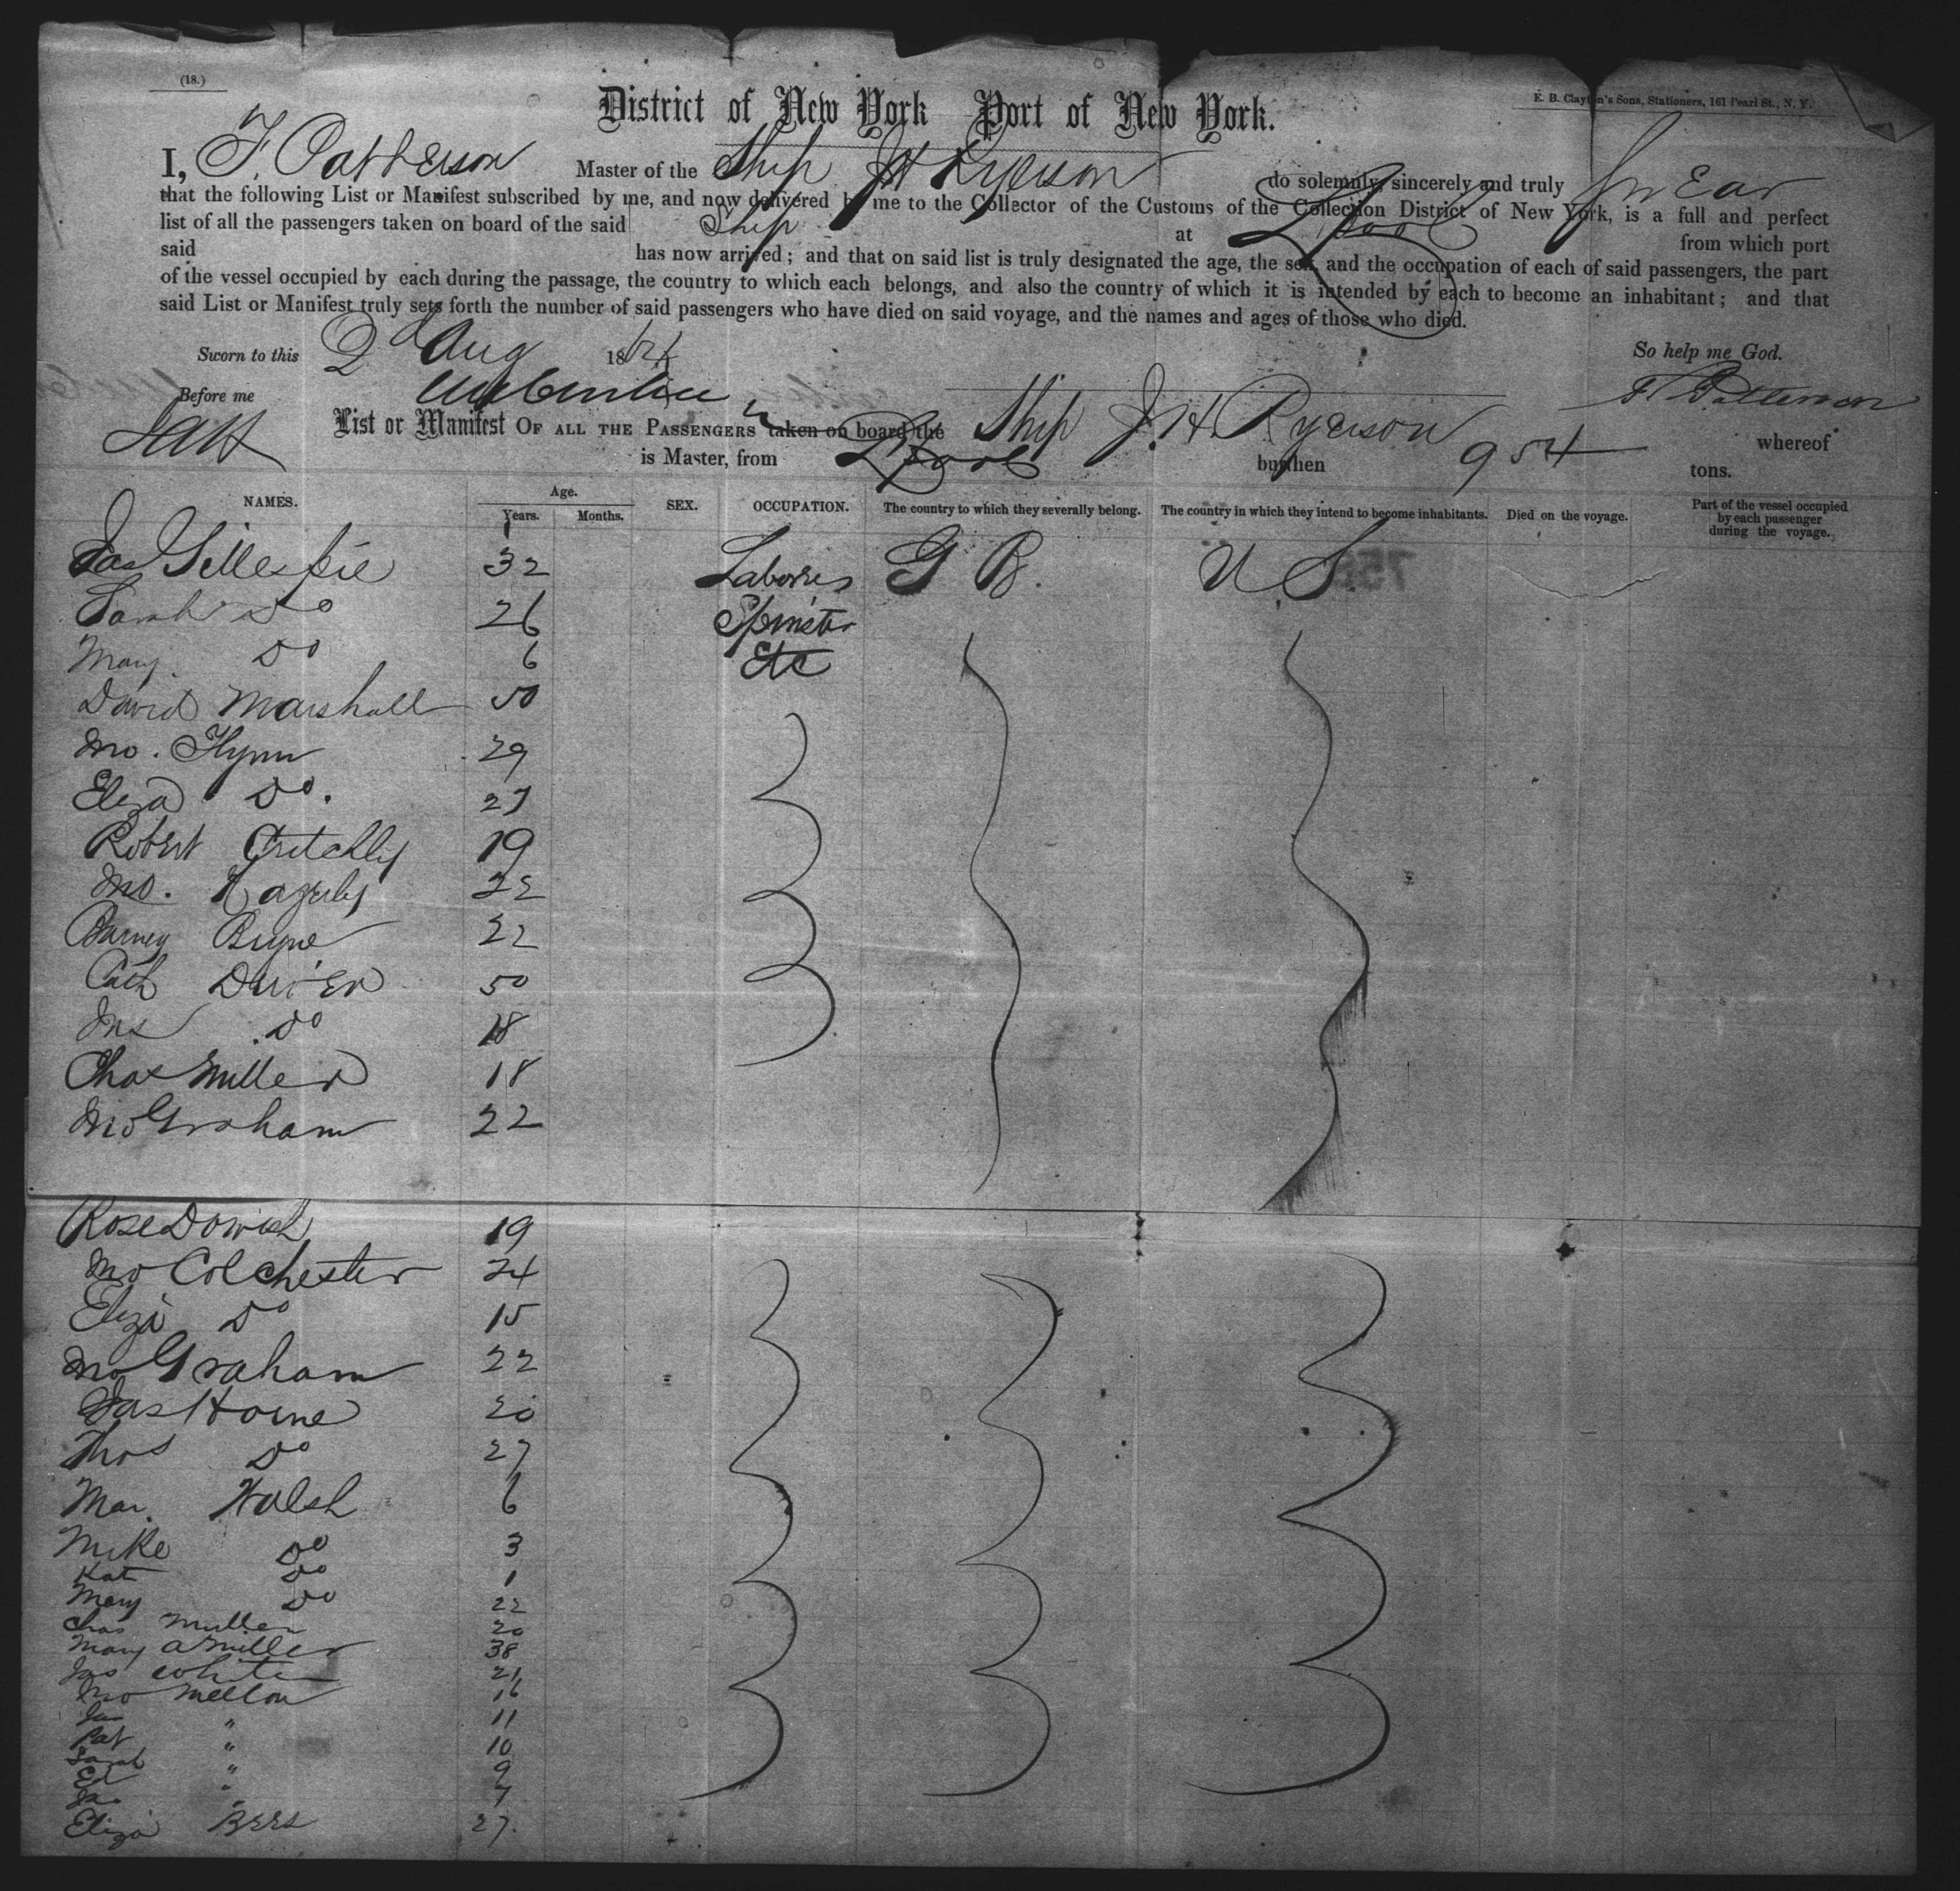 (18.)
District of New York Port of New York.
E. B. Clayton's Sons, Stationers, 161 Pearl St., N. Y.
I, F. Patterson Master of the Ship J H Ryerson do solemnly, sincerely and truly Swear
that the following List or Manifest subscribed by me, and now delivered by me to the Collector of the Customs of the Collection District of New York, is a full and perfect
list of all the passengers taken on board of the said Ship at L'pool from which port
said has now arrived; and that on said list is truly designated the age, the sex, and the occupation of each of said passengers, the part
of the vessel occupied by each during the passage, the country to which each belongs, and also the country of which it is intended by each to become an inhabitant; and that
said List or Manifest truly sets forth the number of said passengers who have died on said voyage, and the names and ages of those who died.
Sworn to this 2d Aug 186 So help me God.
Before me F Patterson
List or Manifest OF ALL THE PASSENGERS taken on board the Ship J. H. Ryerson whereof
is Master, from L'pool burthen 954 tons.
NAMES. Age. SEX. OCCUPATION. The country to which they severally belong. The country in which they intend to become inhabitants. Died on the voyage. Part of the vessel occupied by each passenger during the voyage.
Years. Months.
Jas Gillespie 32 Laborers G B. U.S.
Sarah Do 26 Spinster
Mary Do 6 Etc
David Marshall 50
Jno. Flynn 29
Eliza Do. 27
Robert Critchly 19
Jno. 22
Barney Byrne 22
Cath 50
Do 18
Chas Miller 18
Jno Graham 22
Rose 19
Jno Colchester 24
Eliza Do 15
Jno Graham 22
Jas Horne 20
Thos Do 27
Mar. Walsh 6
Mike Do 3
Kat Do 1
Mary Do 22
Chas Muller 20
Mary A Miller 38
Jas White 21
Jno Mellon 16
" 11
Pat " 10
Sarah " 9
" 7
Eliza Bees 27.